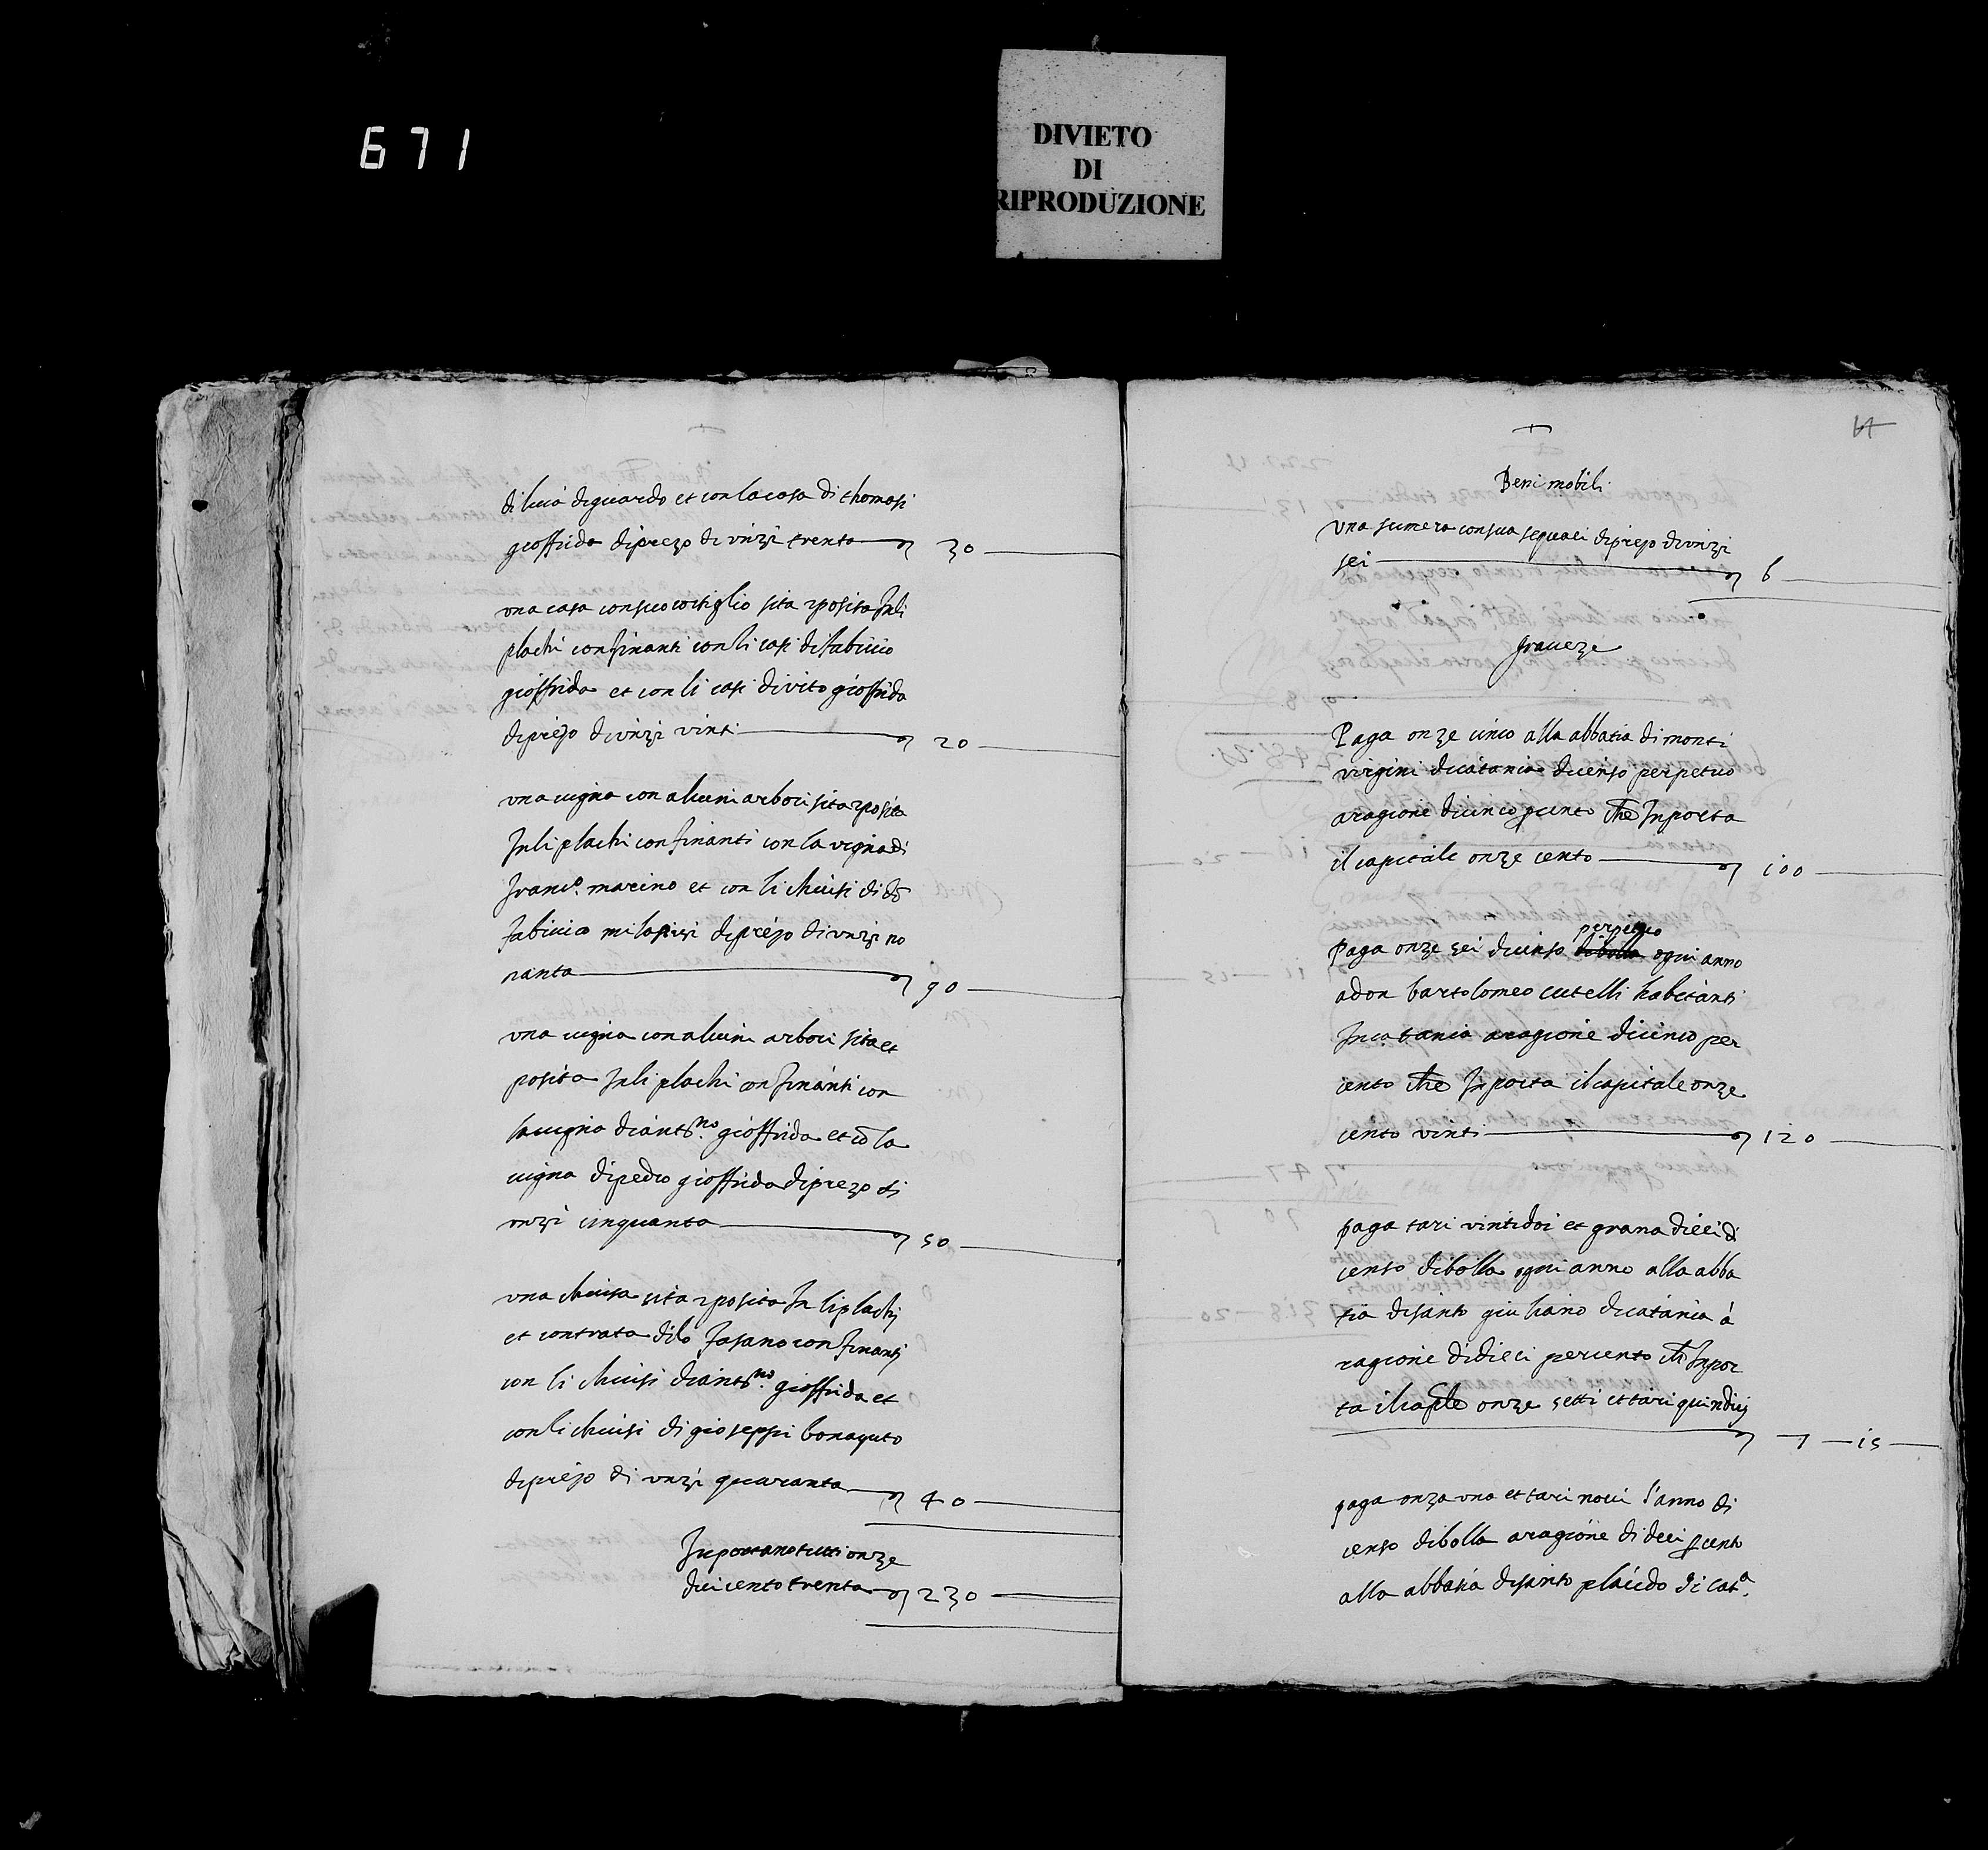 671
DIVIETO
DI
RIPRODUZIONE
di lucia diguardo et con la casa di thomasi
gioffrida di prezo di unzi trenta — 30
una casa con suo cortiglio sita et posita In li
plachi confinanti con li casi di fabricio
gioffrida et con li casi di vito gioffrida
di prezo di unzi vinti — 20
una vigna con alcuni arbori sita et posita
In li plachi confinanti con la vigna di
Franc.o marino et con li chiusi di
fabricio di prezo di unzi no
nanta — 90
una vigna con alcuni arbori sita et
posita In li plachi confinanti con
la vigna di ant.no gioffrida et cō la
vigna di pedro gioffrida di prezo di
unzi cinquanta — 50
una chiusa sita et posita In li plachi
et contrata di lo fasano confinanti
con li chiusi di ant.no gioffrida et
con li chiusi di gioseppi bonaguto
di prezo di unzi quaranta — 40
Inportano tutti onze
ducicento trenta — 230
Beni mobili
Una sumera con sua sequaci di prezo di unzi
sei — 6
Graveze
Paga onze cinco alla abbatia di monti
virgini di catania di censo perpetuo
a ragione di cinco per cento che Inporta
il capitale onze cento — 100
perpetuo
Paga onze sei di censo di bolla ogni anno
a don bartolomeo cutelli habitanti
In catania a ragione di cinco per
cento che Inporta il capitale onze
cento vinti — 120
paga tari vintidoi et grana dieci di
censo di bolla ogni anno alla abba
tia di santo giuliano di catania à
ragione di dieci per cento che Inpor
ta il cap.le onze setti et tari quindici
— 7 — 15
paga onza una et tari novi l'anno di
censo di bolla a ragione di deci per cento
alla abbatia di santo placido di cat.a